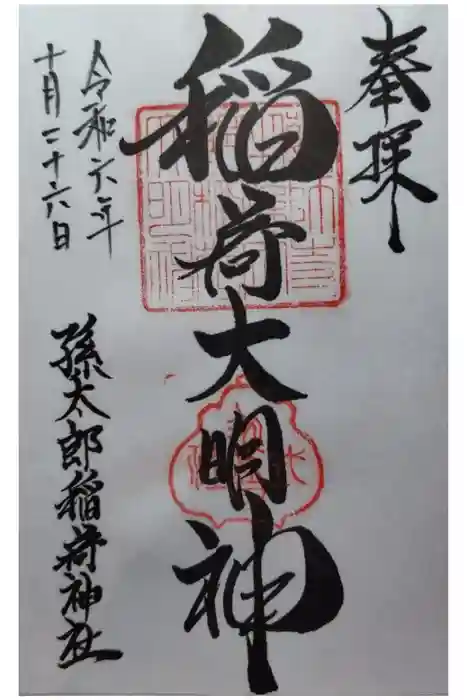 奉拝
稲荷大明神
令和六年
十月二十六日
孫太郎稲荷神社